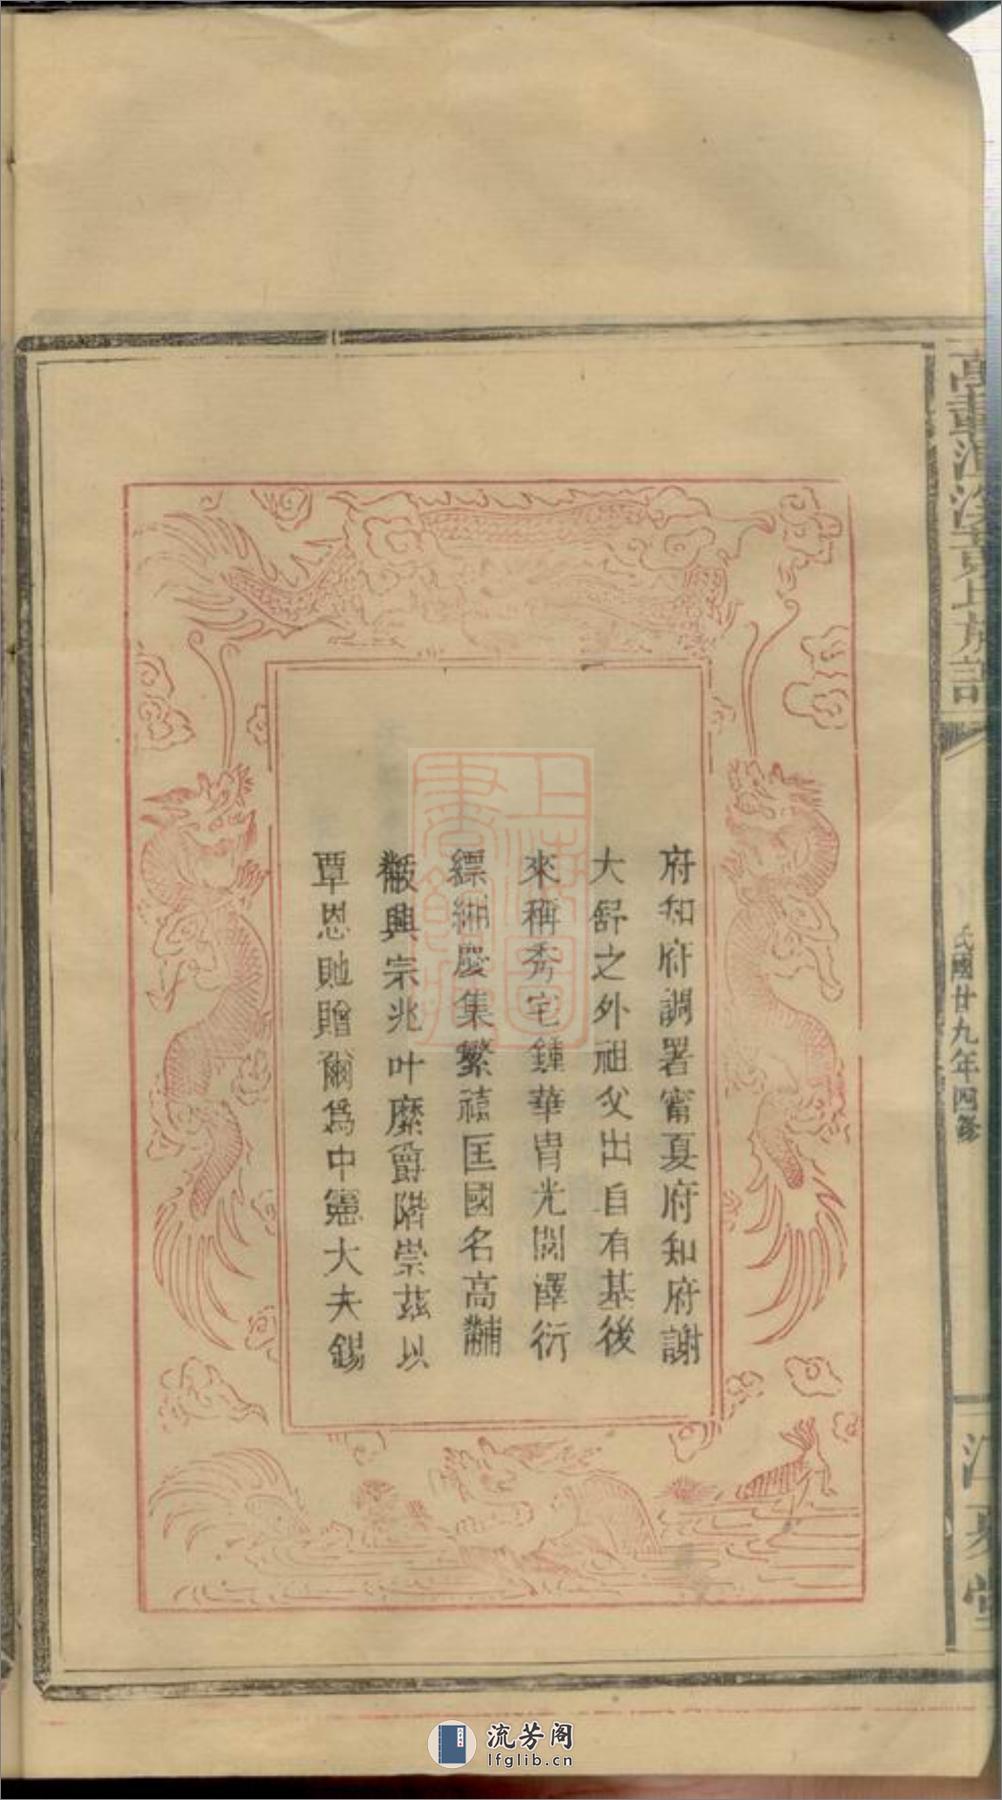 府知府調署甯夏府知府謝
大舒之外祖父出自有基後
來稱秀宅鍾華胄光閥澤衍
縹緗慶集繁禧匡國名高黼
黻興宗兆叶縻爵階崇茲以
覃恩貤贈爾爲中憲大夫錫
氏族記
民國廿九年四修
江夏堂
上海圖書館藏
流芳阁
lfglib.cn